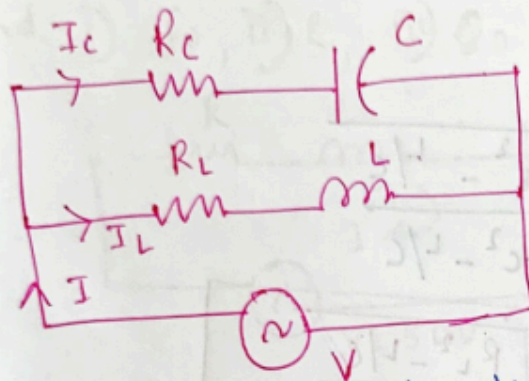 I_C R_C C
R_L L
I_L
I
~
V